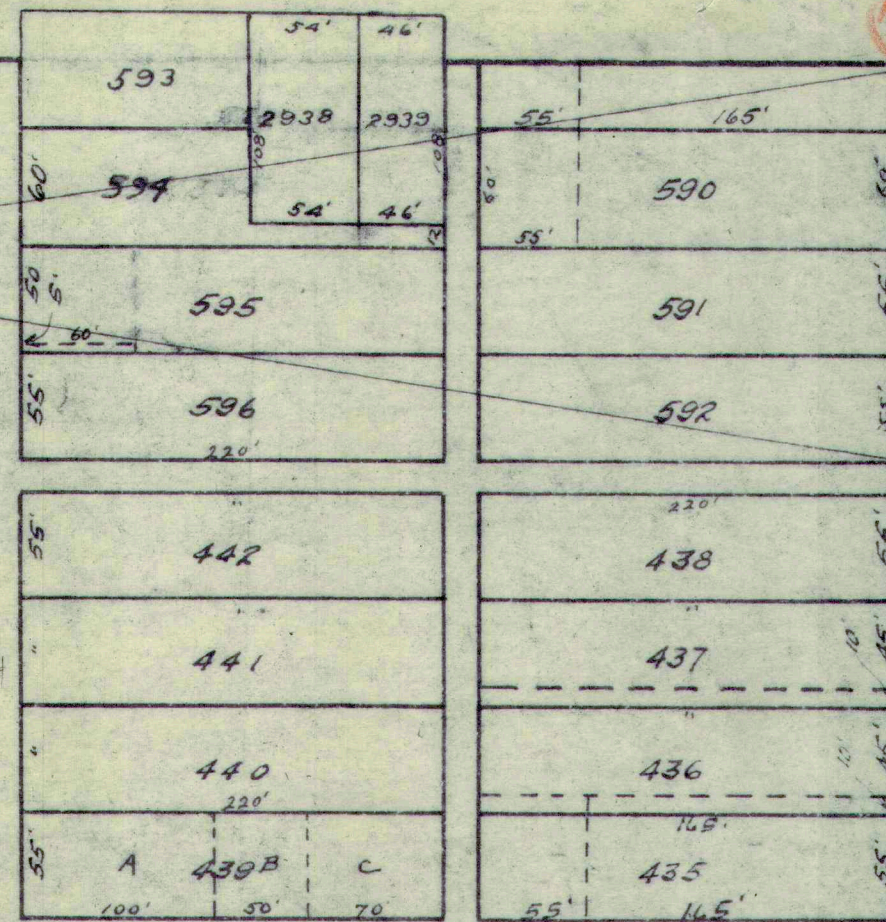 54' 46'
593 2938 2939 55' 165'
108' 108'
60' 594 60' 590 60'
54' 46'
12 55'
50 5' 595 591 55'
60'
55' 596 592 55'
220'
220'
55' 442 438 55'
" 441 437 10' 45'
" 440 436 10' 45'
220' 165'
55' A 439 B C 435 55'
100' 50' 70 55' 165'